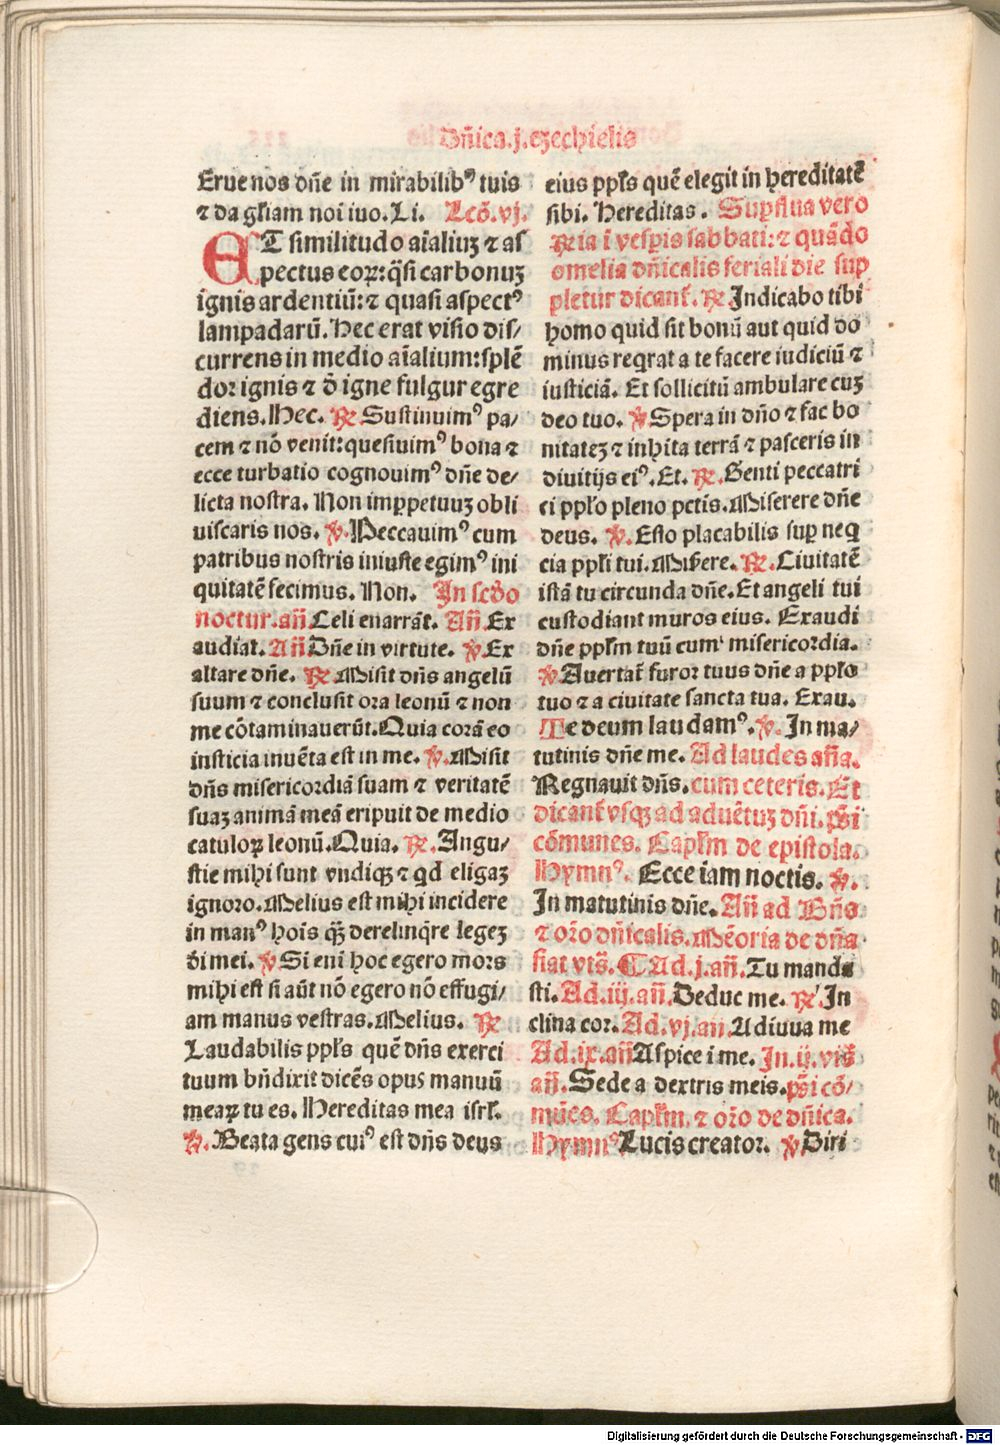 Dñica.j.ezechielis
Erue nos dñe in mirabilibꝰ tuis
⁊ da gl̃iam noi tuo. Li. Lcõ.vj.
ET similitudo aĩaliuꝫ ⁊ as
pectus eoꝝ: q̃si carbonuꝫ
ignis ardentiũ: ⁊ quasi aspectꝰ
lampadarũ. Hec erat visio dis/
currens in medio aĩalium: splẽ
dor ignis ⁊ õ igne fulgur egre
diens. Hec. ℟ Sustinuimꝰ pa/
cem ⁊ nõ venit: quesiuimꝰ bona ⁊
ecce turbatio cognouimꝰ dñe de/
licta nostra. Non imꝑpetuuꝫ obli
uiscaris nos. ℣. Peccauimꝰ cum
patribus nostris iniuste egimꝰ ini
quitatẽ fecimus. Non. In scðo
noctur. añ Celi enarrãt. Añ. Ex
audiat. Añ Dñe in virtute. ℣. Ex
altare dñe. ℟ Misit dñs angelũ
suum ⁊ conclusit ora leonũ ⁊ non
me cõtaminauerũt. Quia corã eo
iusticia inuẽta est in me. ℣. Misit
dñs misericordiã suam ⁊ veritatẽ
suaꝫ animã meã eripuit de medio
catuloꝝ leonũ. Quia. ℟. Angu/
stie mihi sunt vndiqꝫ ⁊ qd eligaꝫ
ignoro. Melius est mihi incidere
in manꝰ hois q̃ꝫ derelinq̃re legeꝫ
ði mei. ℣ Si eni hoc egero mors
mihi est si aũt nõ egero nõ effugi/
am manus vestras. Melius. ℟
Laudabilis ppl̃s quẽ dñs exerci
tuum bñdixit dicẽs opus manuũ
meaꝝ tu es. Hereditas mea isrl̃.
℣. Beata gens cuiꝰ est dñs deus
eius ppl̃s quẽ elegit in hereditatẽ
sibi. Hereditas. Suꝑflua vero
℟ia ĩ vesꝑis sabbati: ⁊ quãdo
omelia dñicalis feriali die sup
pletur dicant̃. ℟ Indicabo tibi
homo quid sit bonũ aut quid do
minus reqrat a te facere iudiciũ ⁊
iusticiã. Et sollicitũ ambulare cuꝫ
deo tuo. ℣ Spera in dño ⁊ fac bo
nitateꝫ ⁊ inhita terrã ⁊ pasceris in
diuitijs eiꝰ. Et. ℟. Genti peccatri
ci ppl̃o pleno pctis. Miserere dñe
deus. ℣. Esto placabilis suꝑ neq
cia ppl̃i tui. Miẽere. ℟. Ciuitatẽ
istã tu circunda dñe. Et angeli tui
custodiant muros eius. Exaudi
dñe ppl̃m tuũ cum misericordia.
℣ Auertat̃ furor tuus dñe a ppl̃o
tuo ⁊ a ciuitate sancta tua. Exau.
Te deum laudamꝰ. ℣. In ma/
tutinis dñe me. Ad laudes aña.
Regnauit dñs. cum ceteris. Et
dicant̃ vsqꝫ ad aduẽtuꝫ dñi. ps̃i
cõmunes. Capl̃m de epistola.
Hymnꝰ. Ecce iam noctis. ℣.
In matutinis dñe. Añ ad Bñs
⁊ or̃o dñicalis. Mẽoria de dña
fiat vts̃. ¶ Ad.j.añ. Tu manda
sti. Ad.iij.añ. Deduc me. ℟ In
clina cor. Ad.vj.añ. Adiuua me
Ad.ix.añ Aspice i me. In.ij.vis̃
añ. Sede a dextris meis. ps̃i cõ/
mũes. Capl̃m. ⁊ or̃o de dñica.
Hymnꝰ Lucis creator. ℣ Diri
Digitalisierung gefördert durch die Deutsche Forschungsgemeinschaft - DFG